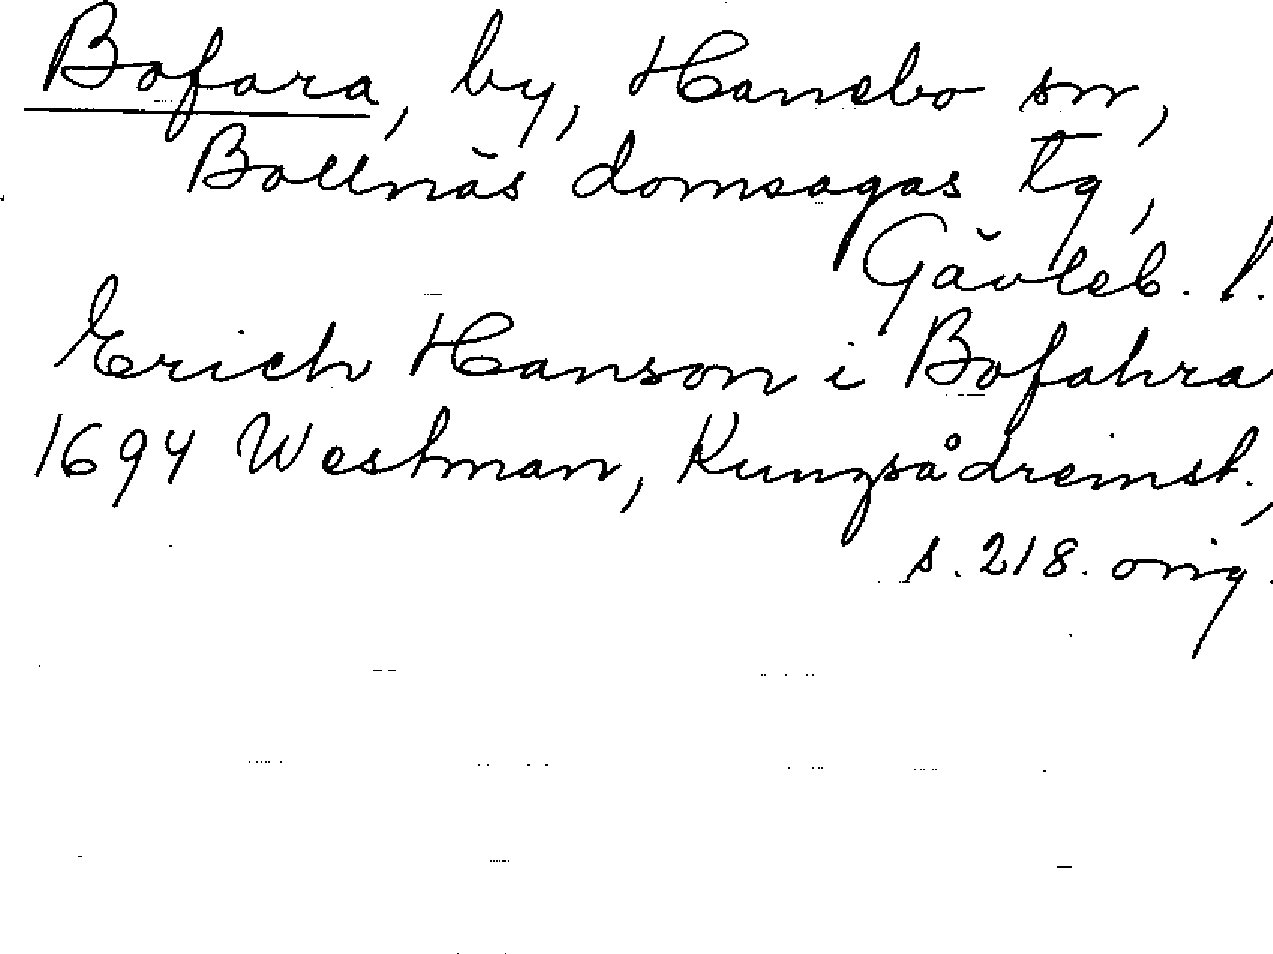 Bofara, by, Hanebo sn,
Bollnäs domsagas tg,
Gävleb. l.
Erich Hanson i Bofahra
1694 Westman, Kungsådreinst.,
s. 218. orig.